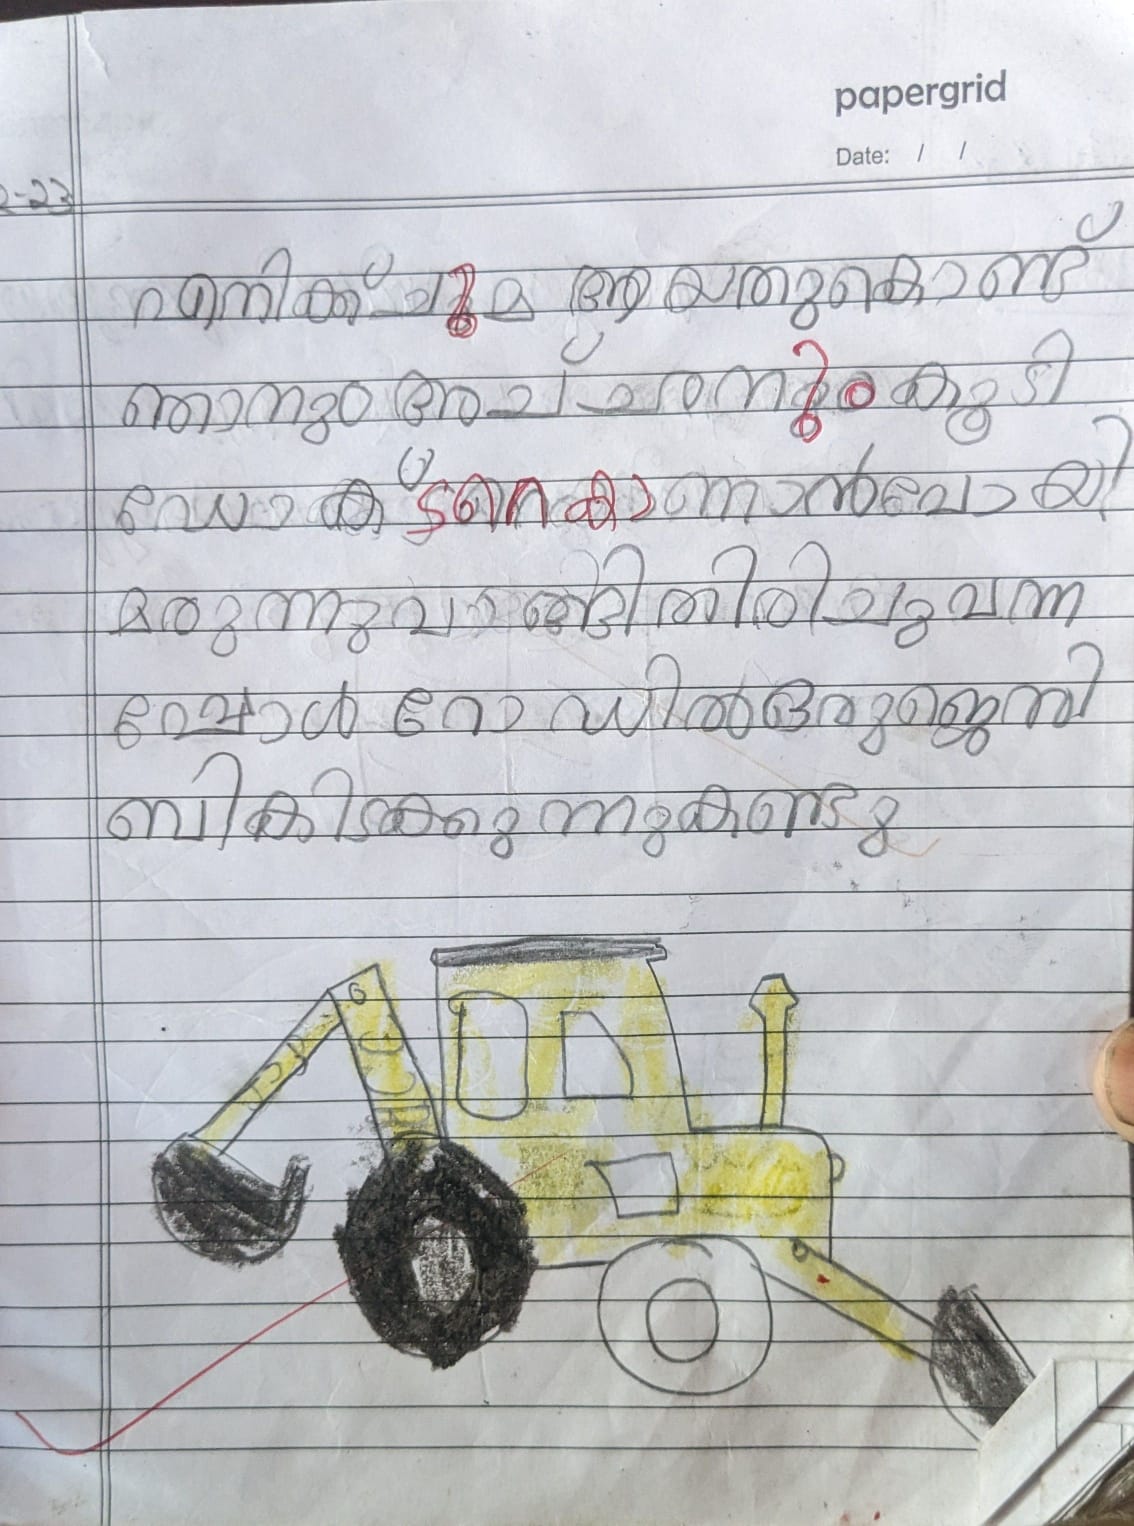 papergrid
Date: / /
2-23
എനിക്ക് ചുമ ആയതുകൊണ്ട്
ഞാനും അച്ചനും കൂടി
ഡോക്ടറെ കാണാൻ പോയി
മരുന്നു വാങ്ങി തിരിച്ചു വന്ന
പ്പോൾ റോഡിൽ ഒരു ജെസി
ബി കിടക്കുന്നു കണ്ടു